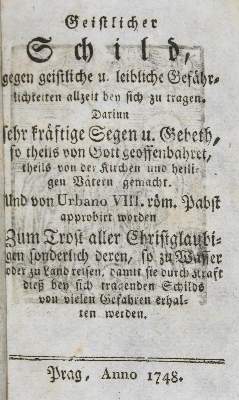 Geistlicher
Schild,
gegen geistliche u. leibliche Gefähr-
lichkeiten allzeit bey sich zu tragen.
Darinn
sehr kräftige Segen u. Gebeth,
so theils von Gott geoffenbahret,
theils von der Kirchen und heili-
gen Vätern gemacht.
Und von Urbano VIII. röm. Pabst
approbirt worden
Zum Trost aller Christglaubi-
gen sonderlich deren, so zu Wasser
oder zu Land reisen, damit sie durch Kraft
dieß bey sich tragenden Schilds
von vielen Gefahren erhal-
ten werden.
Prag, Anno 1748.